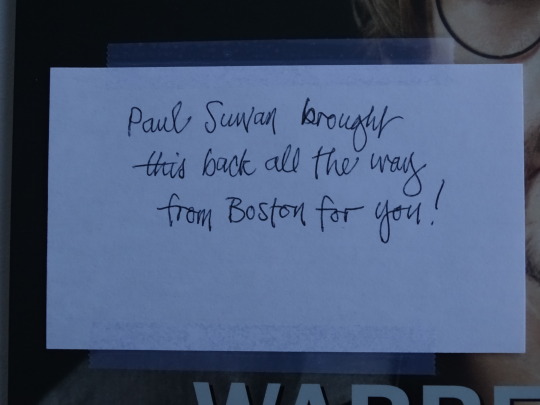 Paul Suwan brought
this back all the way
from Boston for you!